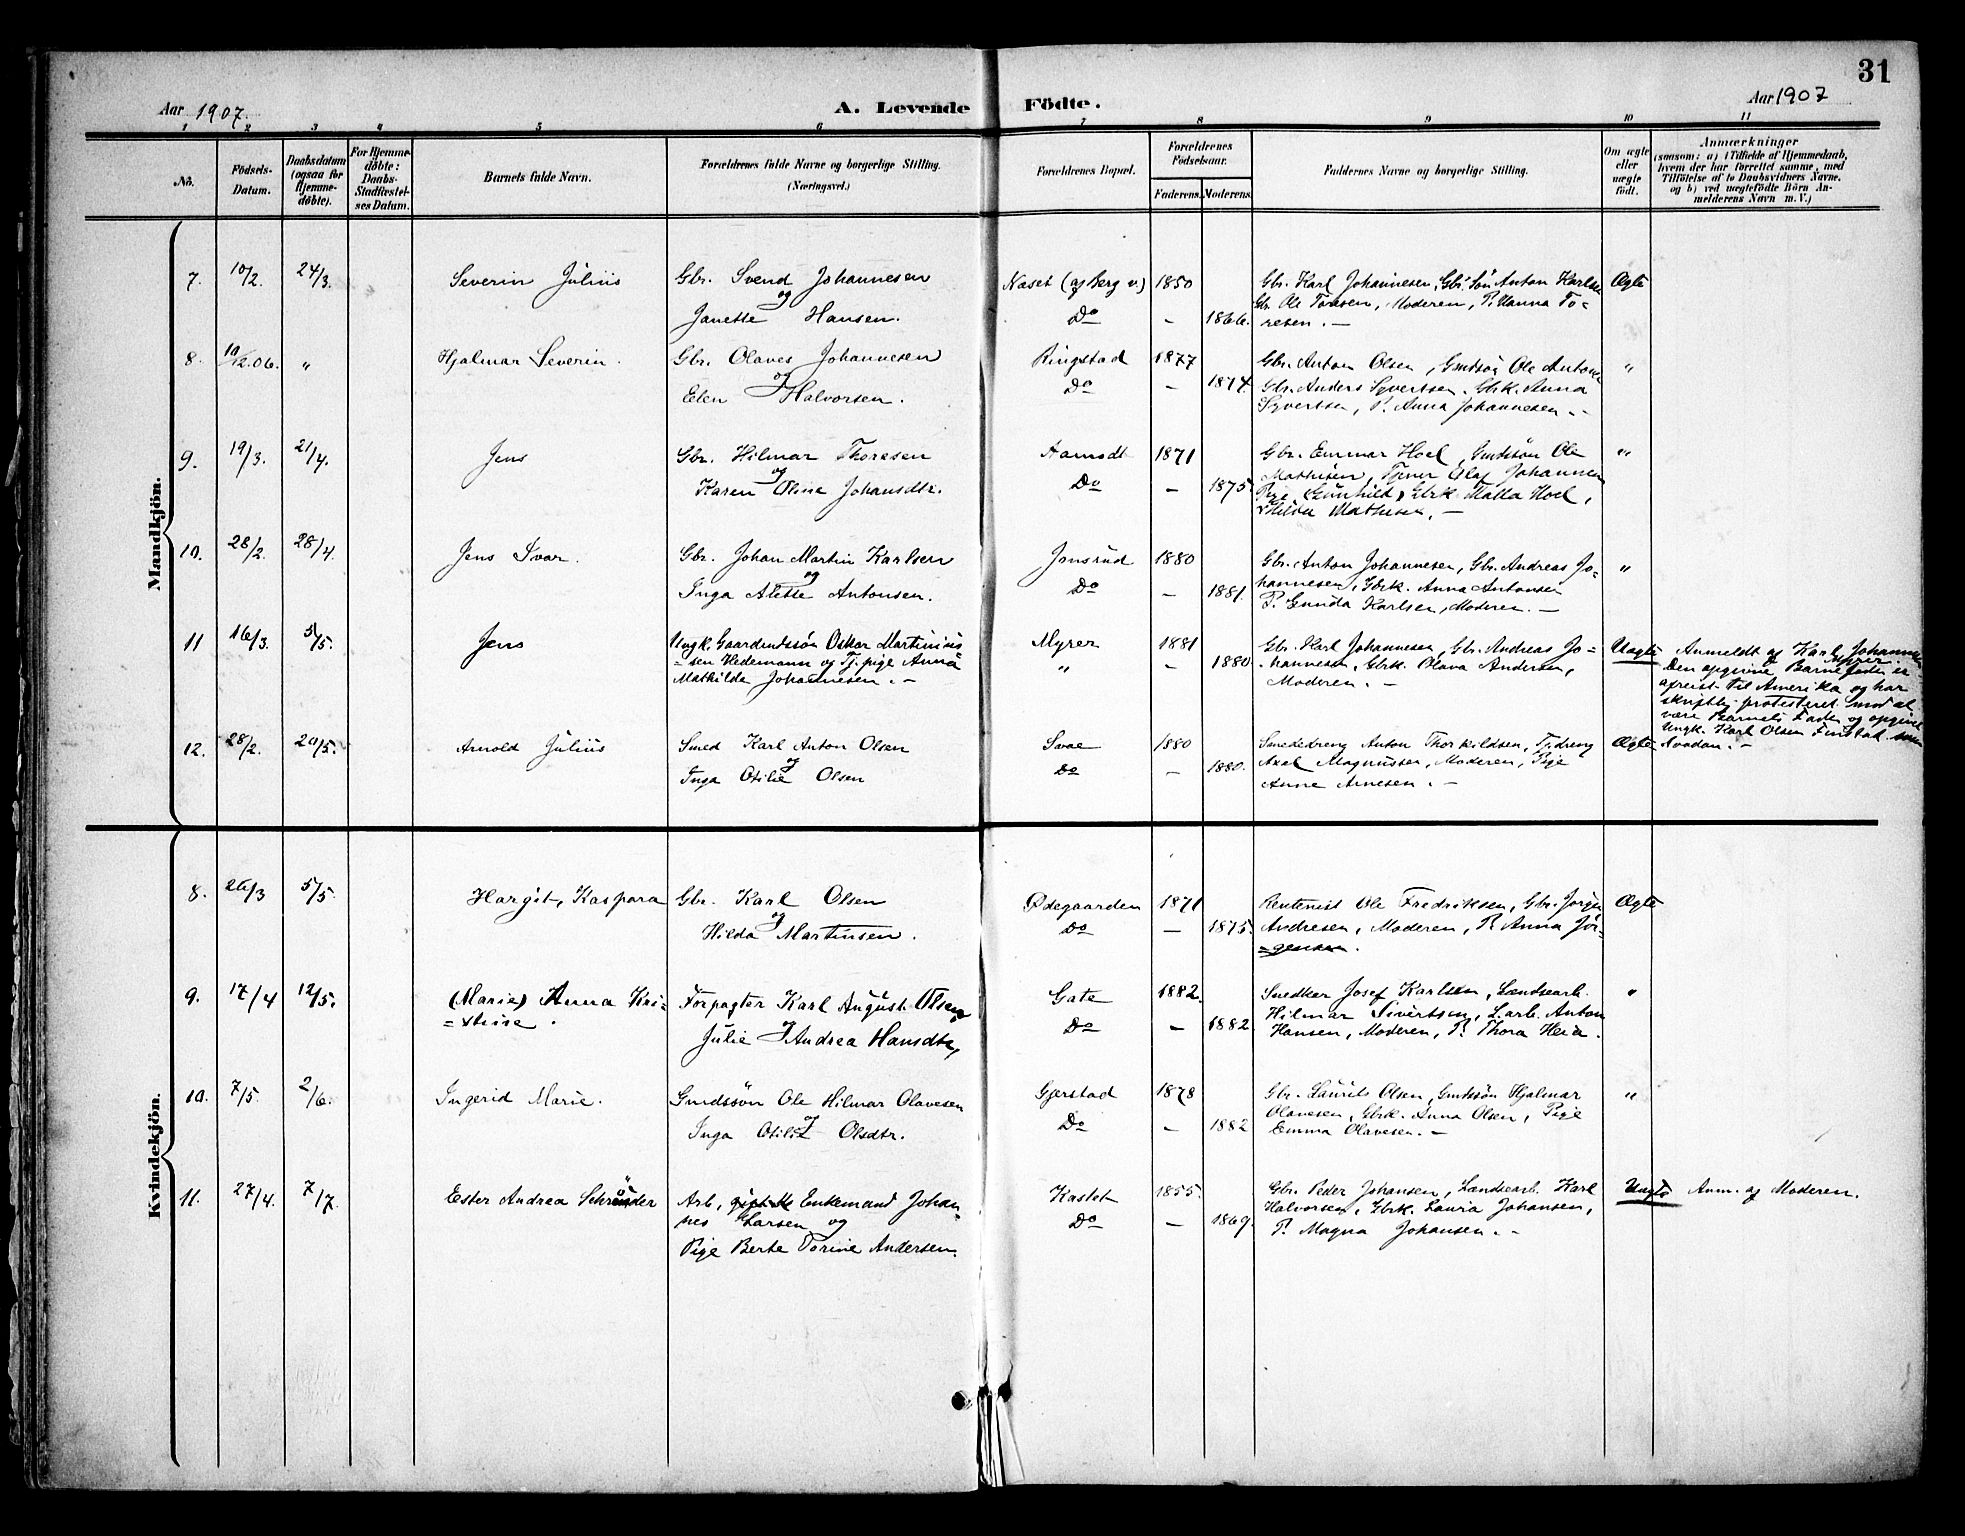 31
Aar 1907. A. Levende Fødte. Aar 1907
1 2 3 4 5 6 7 8 9 10 11
No. Fødsels-Datum. Daabsdatum (ogsaa for Hjemmedøbte). For Hjemmedøbte: Daabs-Stadfæstelses Datum. Barnets fulde Navn. Forældrenes fulde Navne og borgerlige Stilling. (Næringsvei.) Forældrenes Bopæl. Forældrenes Fødselsaar. Faderens. Moderens. Faddernes Navne og borgerlige Stilling. Om ægte eller uægte født. Anmærkninger (saasom: a) i Tilfælde af Hjemmedaab, hvem der har forrettet samme, med Tilføielse af to Daabsvidners Navne, og b) ved uægtefødte Børn Anmelderens Navn m. V.)
Mandkjön.
7. 10/2. 24/3. Severin Julius Gbr. Svend Johannesen Naset (af Berg v.) 1850 Gbr. Karl Johannesen, Gbr. Søn Anton Karlsen Ægte
og Gbr. Ole Toresen, Moderen, P. Hanna To-
Janette Hansen. Do – 1866. resen. –
8. 10/12.06. " Hjalmar Severin. Gbr. Olaves Johannesen Ringstad 1877 Gbr. Anton Olsen, Gmdsøn Ole Antons "
og Do – 1874. Gbr. Anders Syvertsen. Gbrk. Anna
Elen Halvorsen. Syvertsen, P. Anna Johannesen. –
9. 19/3. 21/4. Jens Gbr. Hilmar Thoresen 1871 Gbr. Emmar Hoel, Gmdsøn Ole "
og Mathisen, Tjener Olaf Johannesen
Karen Oline Johansdtr. Do – 1875. Pige (Gunhild) Gbrk. Malla Hoel,
Hilda Mathisen. –
10. 28/2. 28/4. Jens Ivar. Gbr. Johan Martin Karlsen Jonsrud 1880 Gbr. Anton Johannesen, Gbr. Andreas Jo- "
og Do – 1881. hannesen, Gbrk. Anna Antonsen
Inga Alette Antonsen. P. Gunda Karlsen, Moderen. –
11 16/3. 5/5. Jens Ungk. Gaardmdssøn Oskar Martinius Myrer 1881 Gbr. Karl Johannesen, Gbr. Andreas Jo- Uægte Anmeldt af Karl Johannesen
=sen Hedemann og Tj. pige Anna " – 1880. hannesen, Gbrk. Olava Andersen, Myrer.
Mathilde Johannesen. – Moderen. – Den opgivne Barnefader er
afreist til Amerika og har
skriftlig protesteret mod at
være Barnets Fader og opgivet
Ungk. Karl Olsen Finstad som
saadan. –
12. 28/2. 20/5. Arnold Julius Smed Karl Anton Olsen Svae 1880 Smededreng Anton Thorkildsen, Tj. dreng Ægte
og Do – 1880. Axel Magnussen, Moderen, Pige
Inga Otilie Olsen Anne Arnesen. –
Kvindekjön.
8. 26/3 5/5. Hargit, Kaspara Gbr. Karl Olsen Ødegaarden 1871 Rentenist Ole Fredriksen, Gbr. Jørgen Ægte
og Do – 1875. Andresen, Moderen, P. Anna Jør-
Hilda Martinsen. =gensen.
9. 17/4 12/5. (Marie) Anna Kri- Forpagter Karl August Olsen Gate 1882. Snedker Josef Karlsen, Landsarb. "
=stine. og Do – 1882 Hilmar Sivertsen, L.arb. Anton
Julie Andrea Hansdtr, Hansen, Moderen, P. Thora Heia.
10. 7/5. 2/6. Ingerid Marie. Gmdssøn Ole Hilmar Olavesen Gjerstad 1878 Gbr. Laurits Olsen, Gmdsøn Hjalmar "
og Do – 1882 Olavesen, Gbrk. Anna Olsen, Pige
Inga Otilie Olsdtr. Emma Olavesen. –
11. 27/4. 7/7. Ester Andrea Schrøder Arb, Enkemand Johan- Kastet 1855. Gbr. Peder Johansen, Landsarb. Karl Uægte Anm. af Moderen.
nes Larsen og Do – 1869. Halvorsen, Gbrk. Laura Johansen,
Pige Berte Torine Andersen. P. Magna Johansen. –